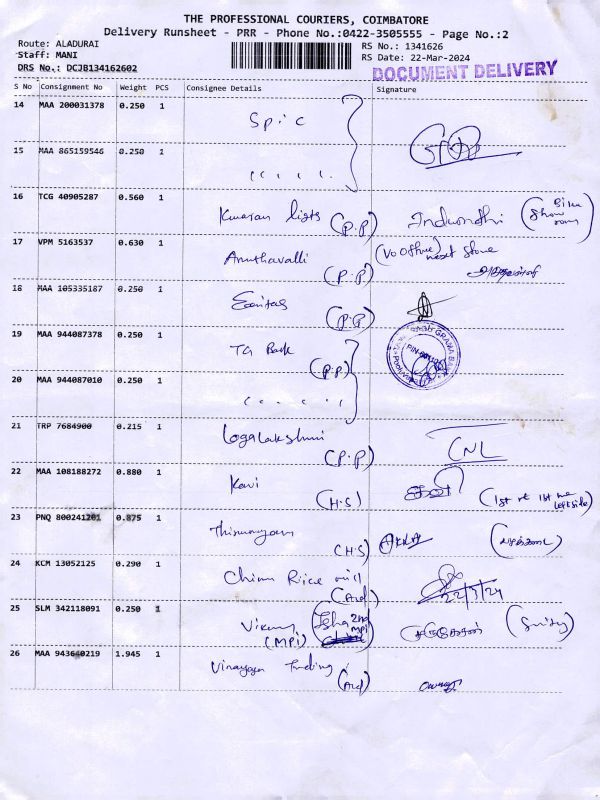 THE PROFESSIONAL COURIERS, COIMBATORE
Delivery Runsheet - PRR - Phone No.:0422-3505555 - Page No.:2
Route: ALADURAI
Staff: MANI
DRS No.: DCJB134162602
RS No.: 1341626
RS Date: 22-Mar-2024
DOCUMENT DELIVERY
S No Consignment No Weight PCS Consignee Details Signature
14 MAA 200031378 0.250 1 Spic
15 MAA 865159546 0.250 1
16 TCG 40905287 0.560 1 Kumaran lights (P.P) (Bike Show room)
17 VPM 5163537 0.630 1 Amuthavalli (P.P) next Store
18 MAA 105335187 0.250 1 (P.P)
19 MAA 944087378 0.250 1 TG Bank (P.P)
20 MAA 944087010 0.250 1
21 TRP 7684900 0.215 1 Logalakshmi (P.P)
22 MAA 108188272 0.880 1 Kavi (H.S) கவி (1st rt 1st me leftside)
23 PNQ 800241201 0.875 1 (H.S)
24 KCM 13052125 0.290 1 Chinna Rice mill (Ard) 22/3/24
25 SLM 342118091 0.250 1 (MPi) 2nd MPi
26 MAA 943640219 1.945 1 Vinayaga Trading (Ard)